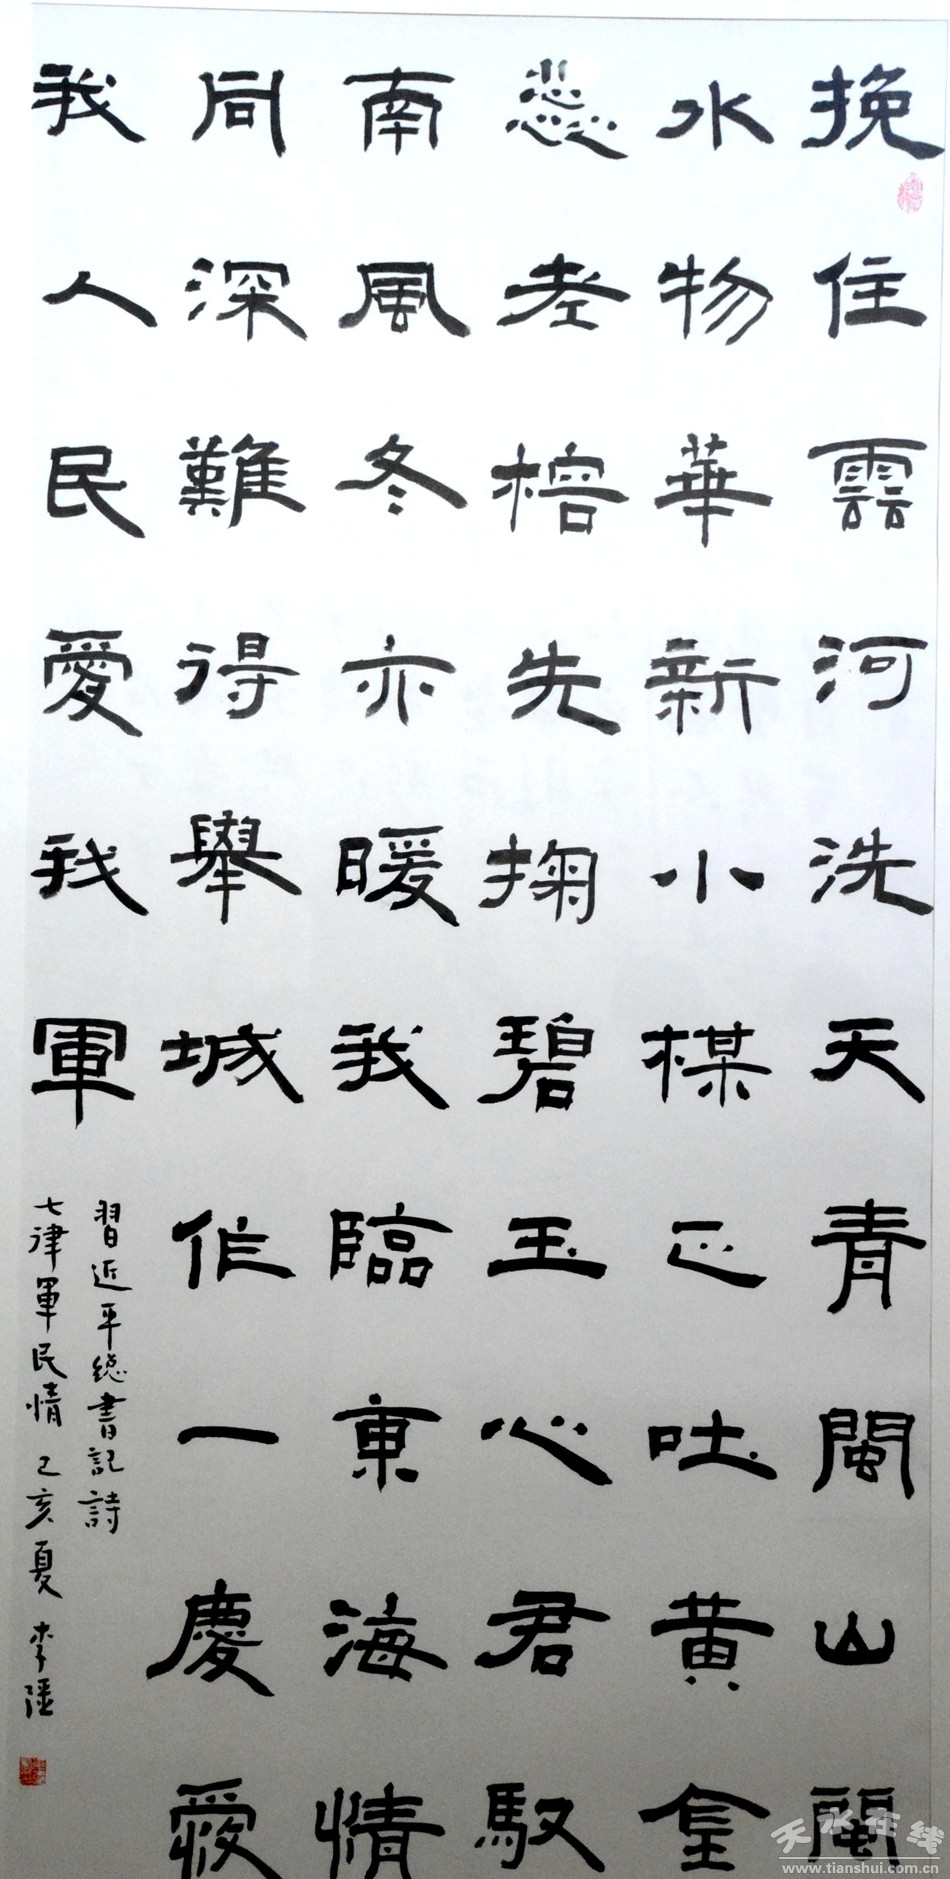 挽住雲河洗天青閩山閩
水物華新小楳正吐黄金
蕊老榕先掬碧玉心君馭
南風冬亦暖我臨東海情
同深難得舉城作一慶愛
我人民愛我軍
習近平總書記詩
七律軍民情 己亥夏 李
天水在线
www.tianshui.com.cn